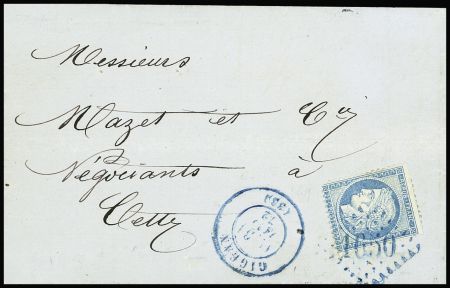 Messieurs
Mazet et Cie
Négociants à
Cette
GIGEAN
(33)
1650